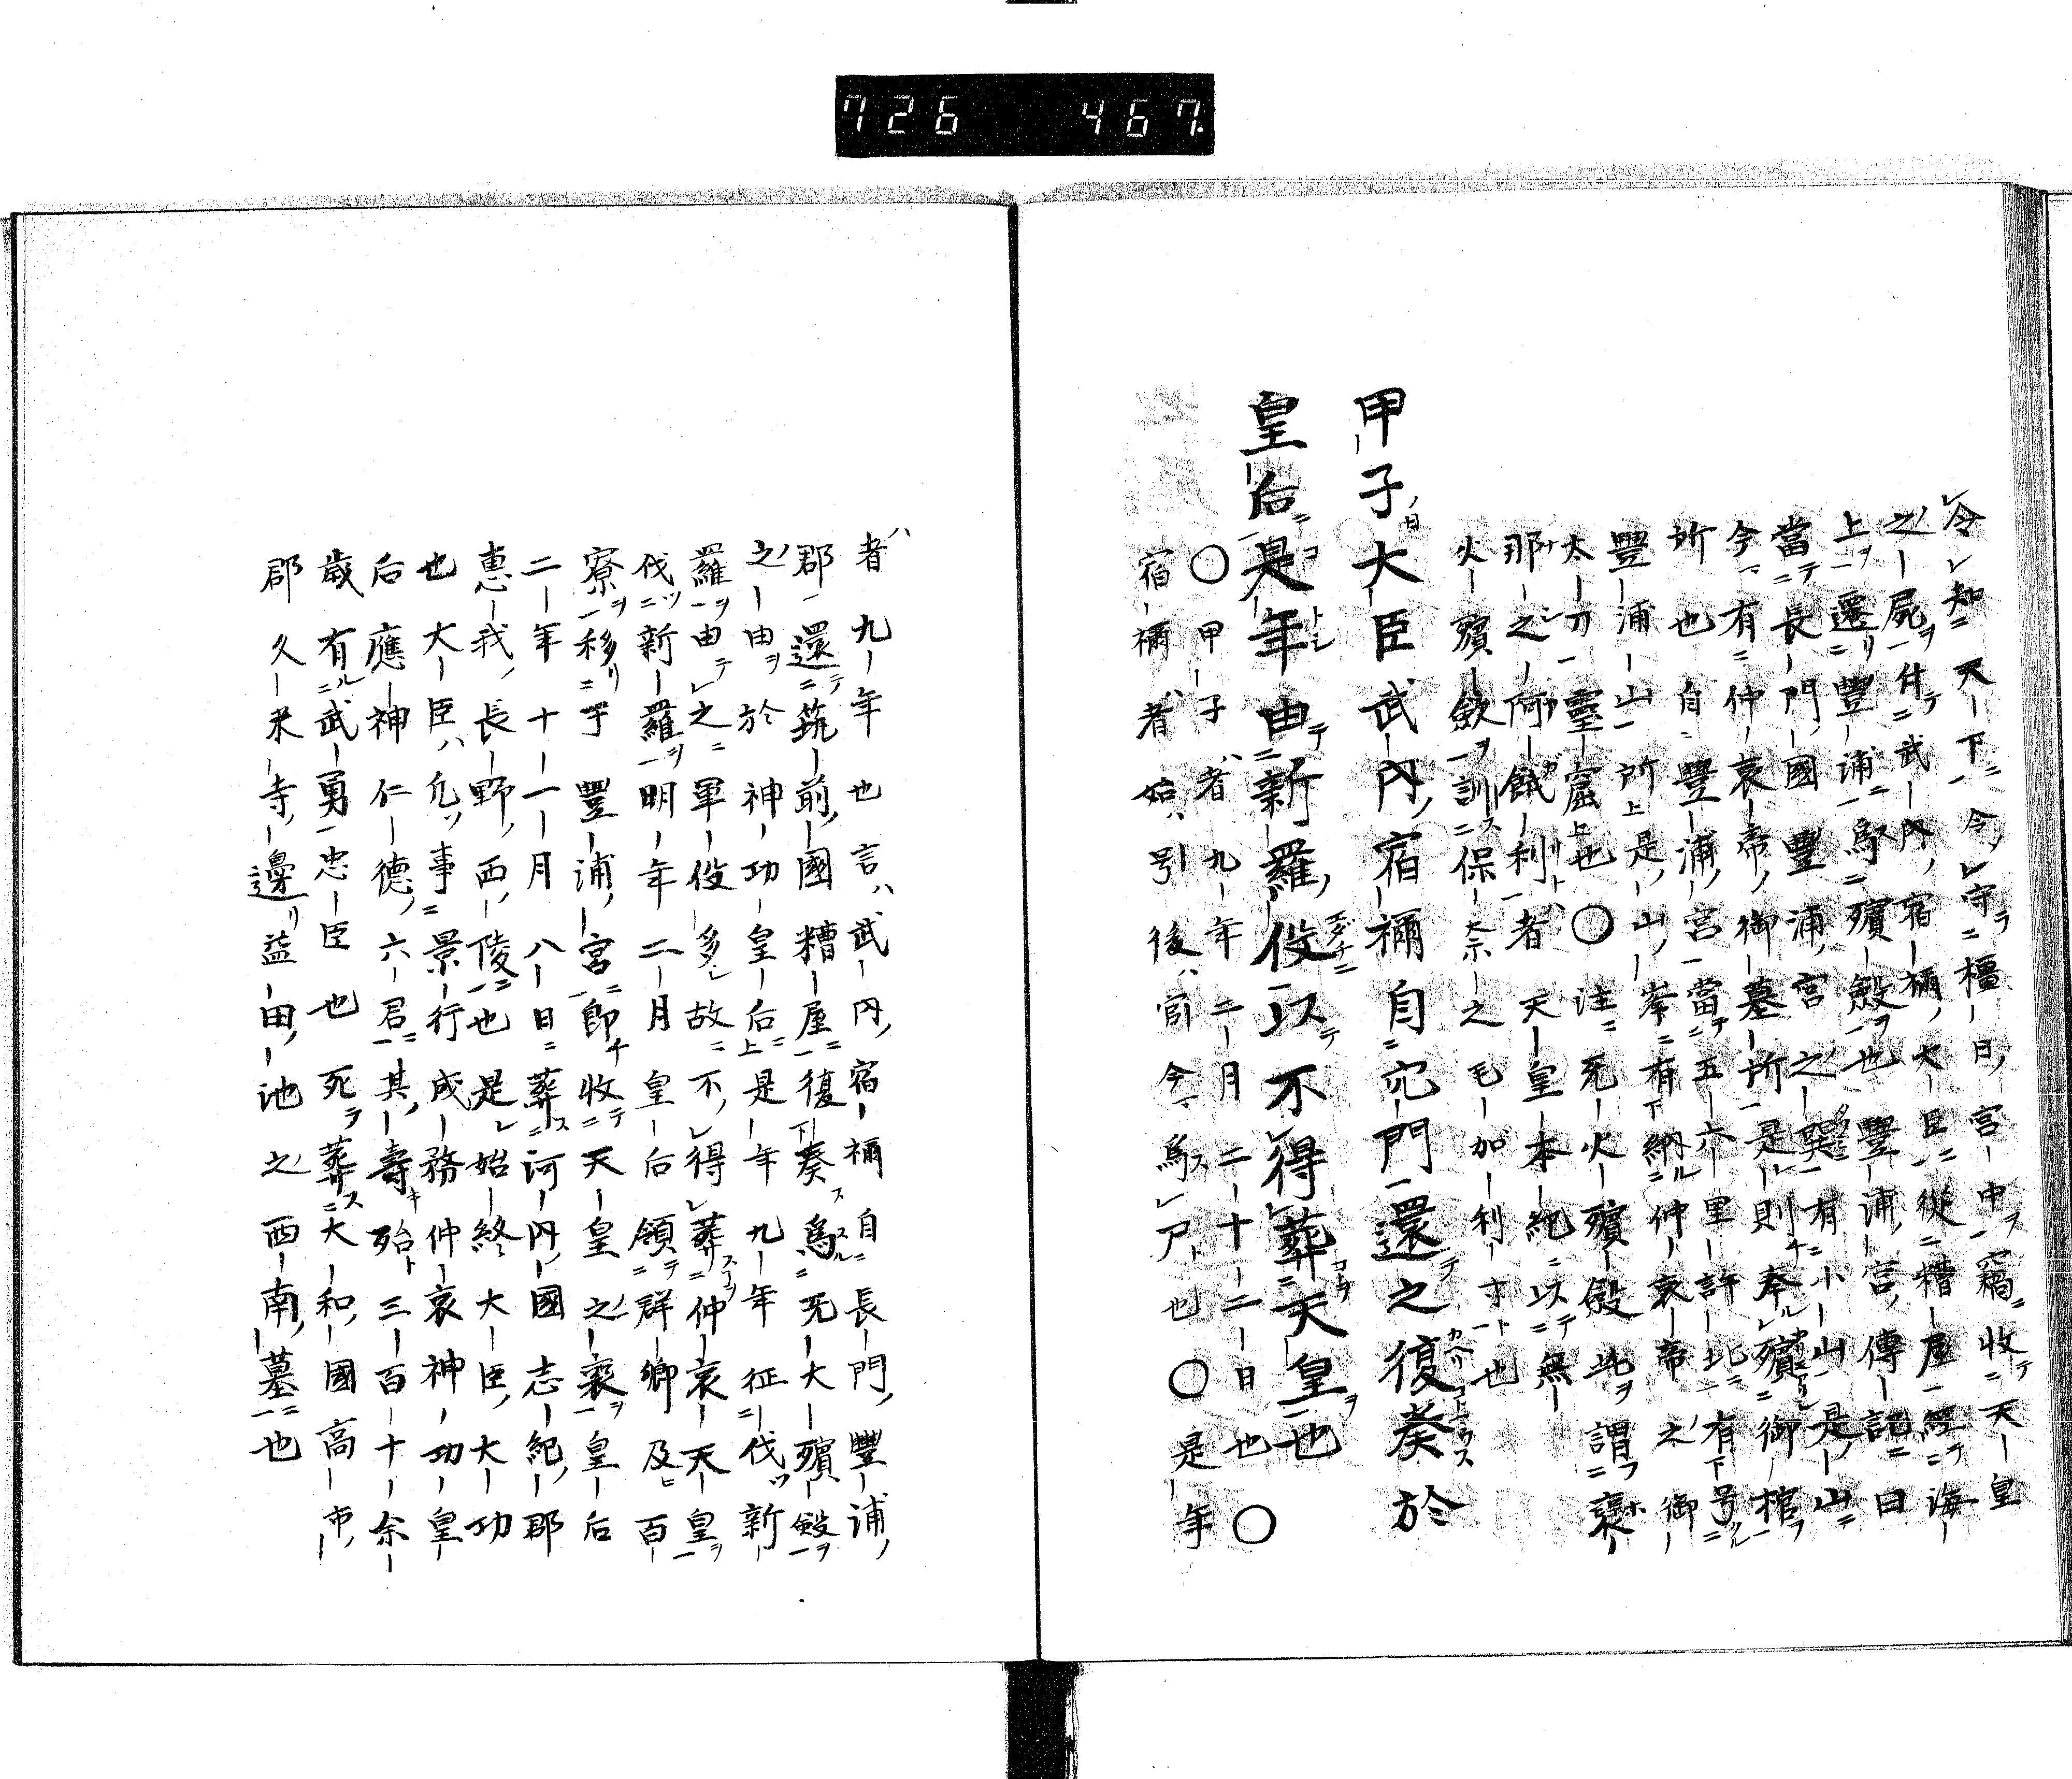 726 467
令知天下令守橿日宮中竊收天皇
之屍付武内宿禰大臣從糟屋經海
上遷豐浦爲殯殿也豐浦宮傳記曰
當長門國豐浦宮之巽有小山是山
今有仲哀帝御墓所是則奉殯御棺
所也自豐浦宮當五六里許北有号
豐浦山所是山峯有納仲哀帝之御
太刀靈窟也〇注无火殯殿此謂褒
那之阿餓利者天皇本紀以無
火殯斂訓保之毛加利寸也
甲子大臣武内宿禰自穴門還之復奏於
皇后是年由新羅伇以不得葬天皇也
〇甲子者九年二月二十二日也〇
宿禰者始号後官今爲尸也〇是年
者九年也言武内宿禰自長門豐浦
郡還筑前國糟屋復奏爲无大殯殿
之由於神功皇后是年九年征伐新
羅由之軍伇多故不得葬仲哀天皇
伐新羅明年二月皇后領群卿及百
寮移于豐浦宮即收天皇之喪皇后
二年十一月八日葬河内國志紀郡
惠我長野西陵也是始終大臣大功
也大臣凢事景行成務仲哀神功皇
后應神仁德六君其壽殆三百十余
歲有武勇忠臣也死葬大和國高市
郡久米寺邊益田池之西南墓也